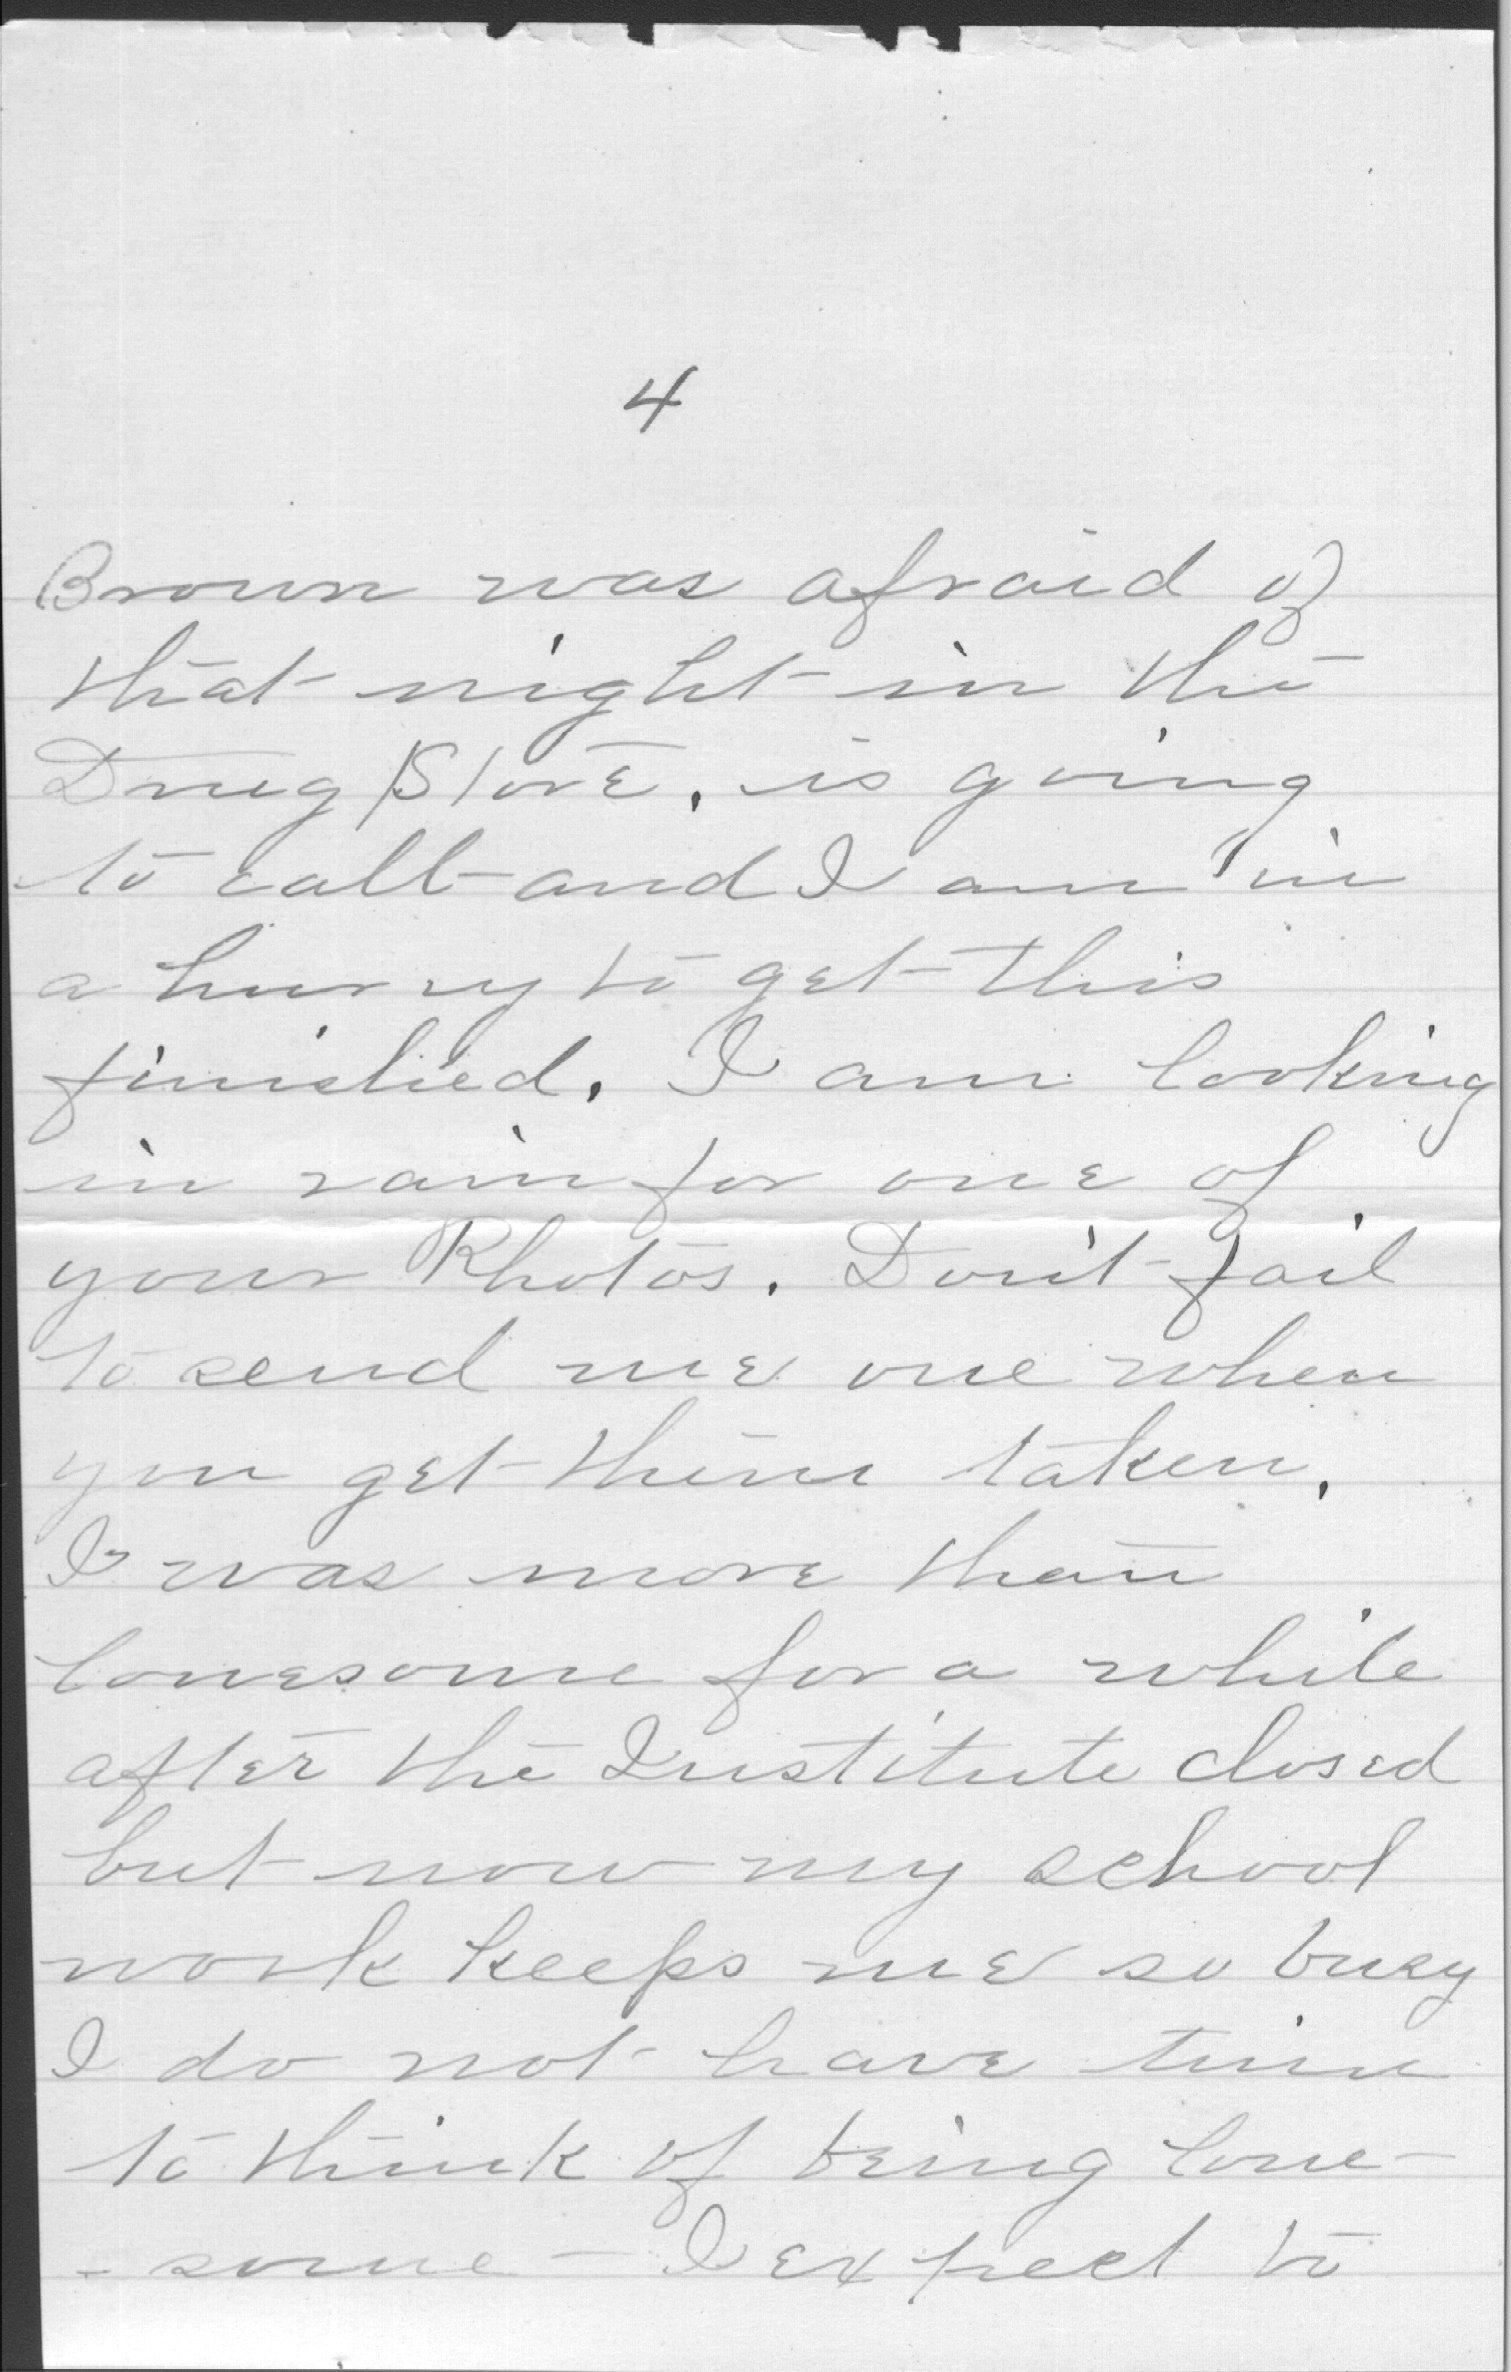 4
Brown was afraid of
that night in the
Drug Store, is going
to call and I am in
a hurry to get this
finished. I am looking
in vain for one of
your Photos. Don't fail
to send me one when
you get them taken.
I was more than
lonesome for a while
after the Institute closed
but now my school
work keeps me so busy
I do not have time
to think of being lone-
- some - I expect to